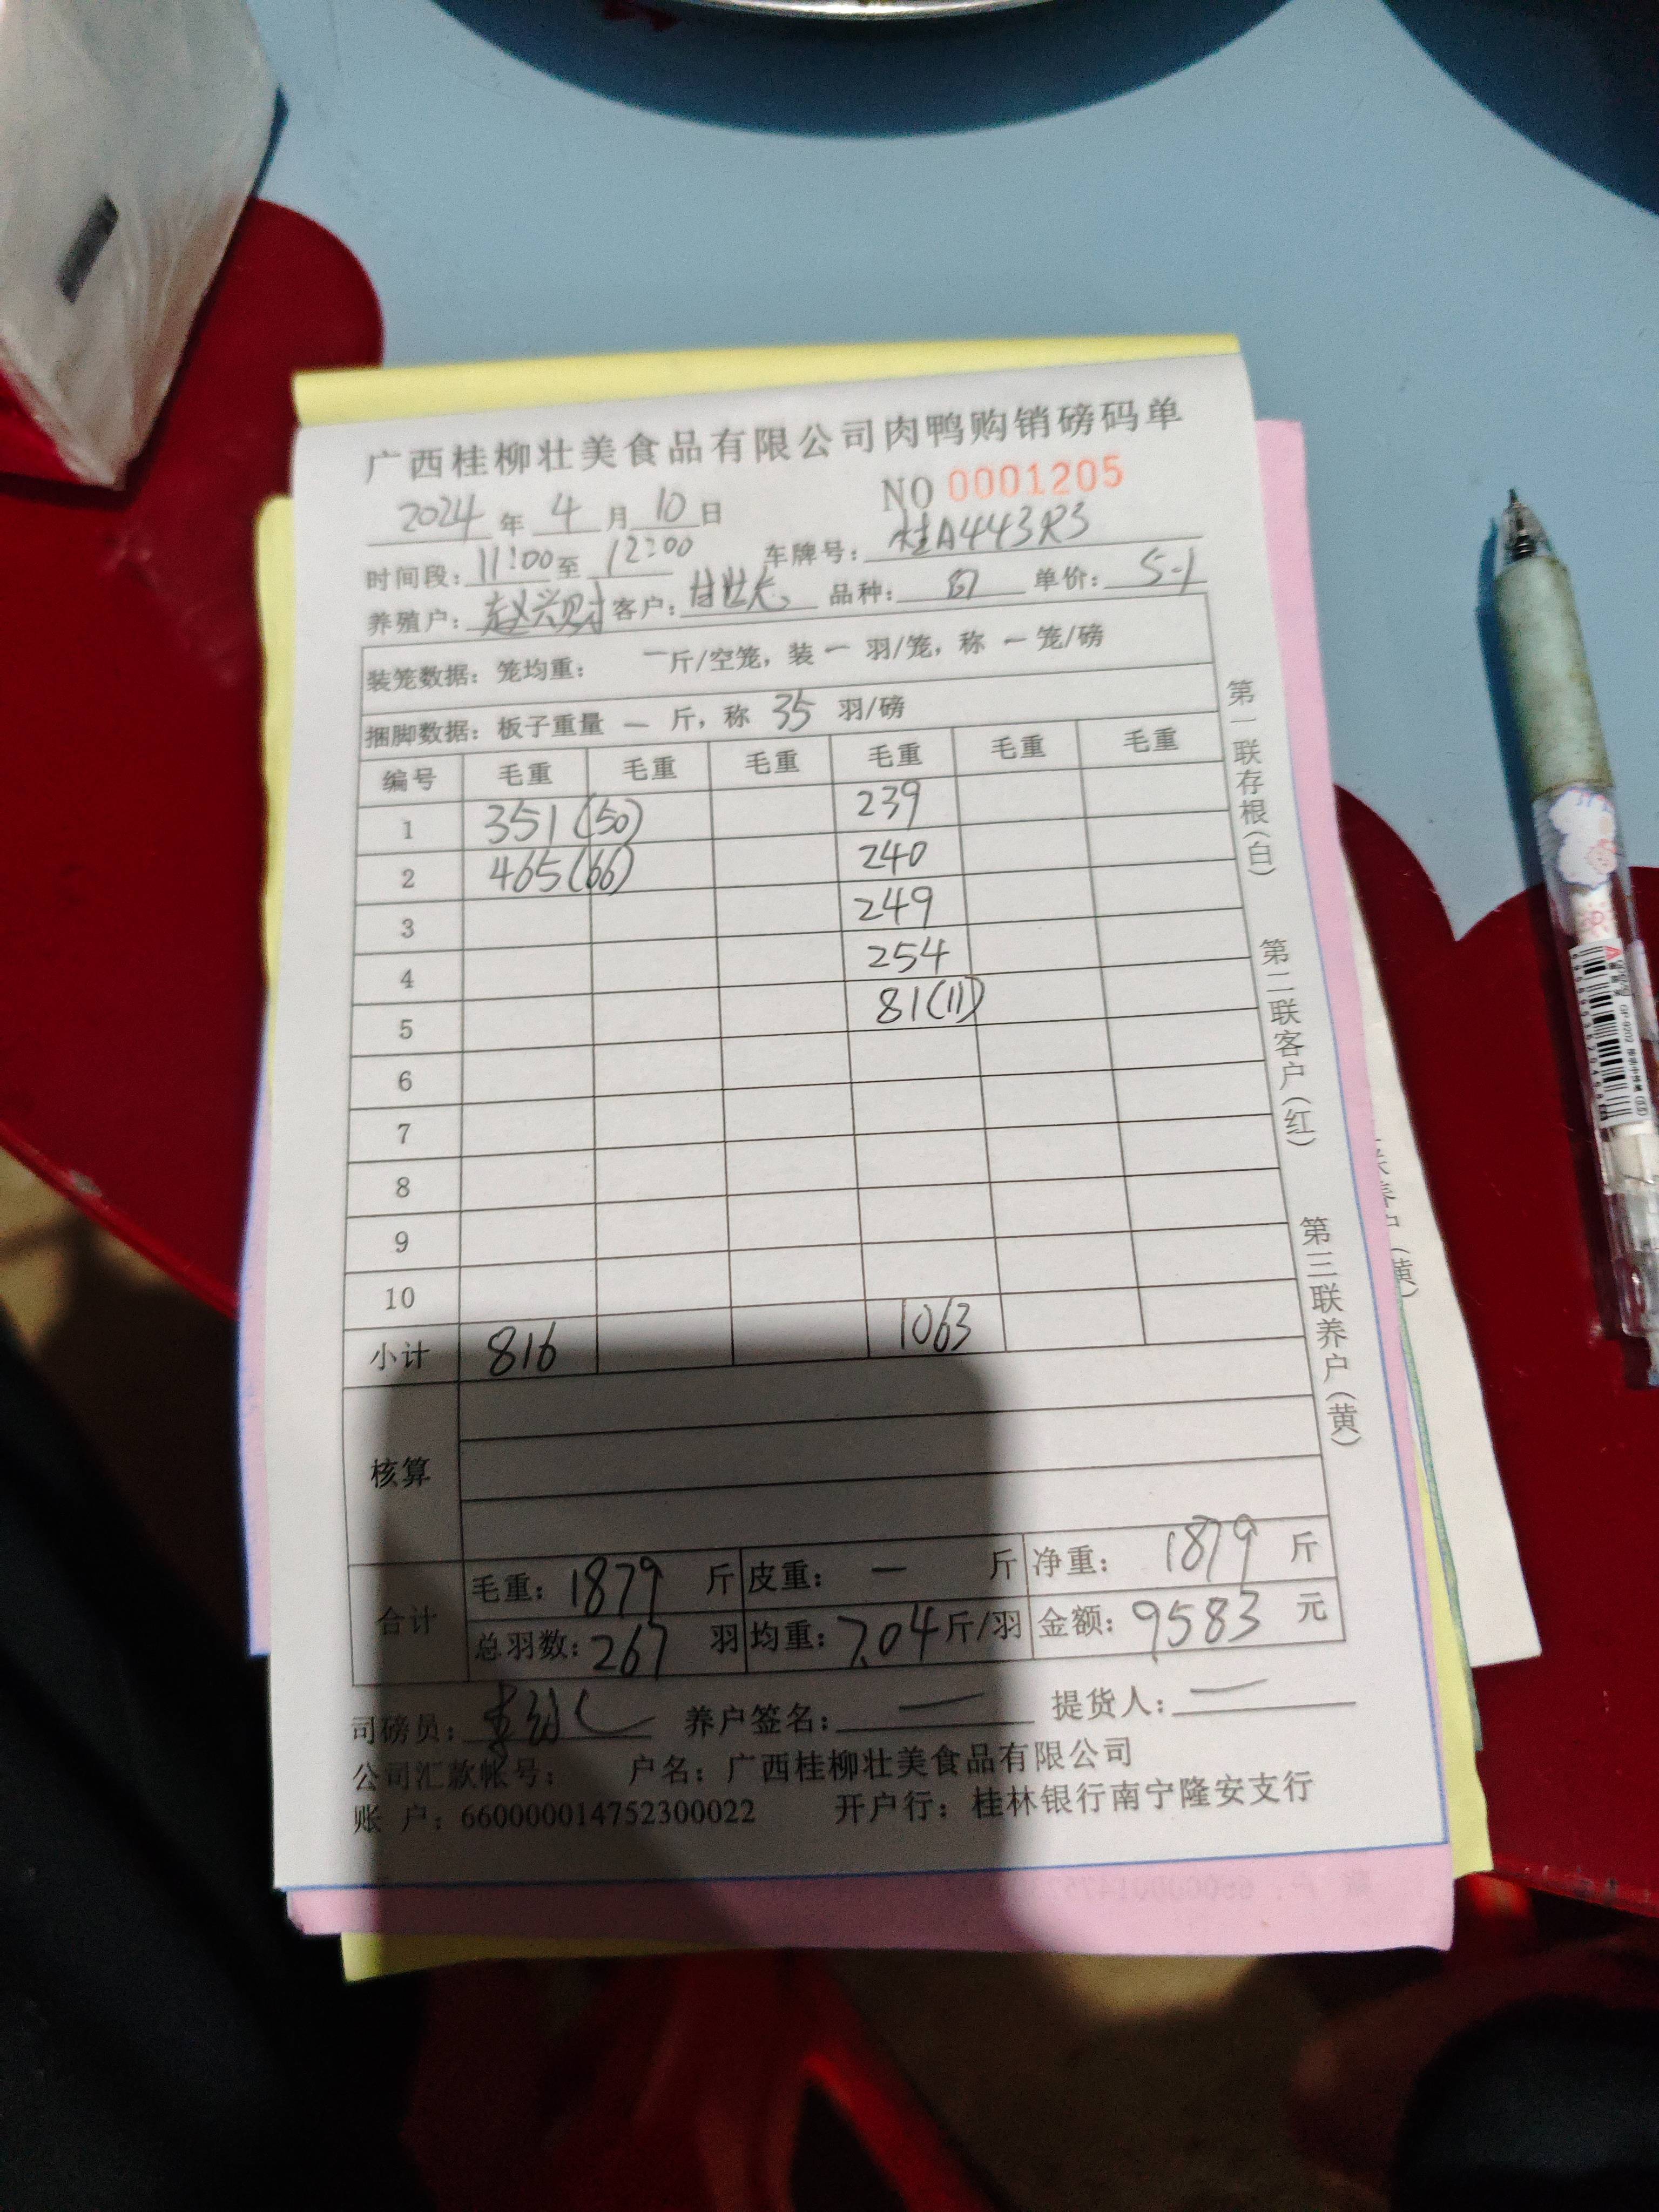 广西桂柳壮美食品有限公司肉鸭购销磅码单
NO 0001205
2024年4月10日
时间段：11:00至12:00 车牌号：桂A443R3
养殖户：赵兴财 客户：甘世 品种：白 单价：5-1
装笼数据：笼均重： 一斤/空笼，装一羽/笼，称一笼/磅
捆脚数据：板子重量 一 斤，称 35 羽/磅
编号 毛重 毛重 毛重 毛重 毛重 毛重
1 351(50) 239
2 465(66) 240
3 249
4 254
5 81(11)
6
7
8
9
10
小计 816 1063
核算
合计
毛重：1879 斤 皮重：一 斤 净重：1879 斤
总羽数：267 羽 均重：7.04斤/羽 金额：9583 元
司磅员： 养户签名：一 提货人：一
公司汇款帐号： 户名：广西桂柳壮美食品有限公司
账 户：660000014752300022 开户行：桂林银行南宁隆安支行
第一联存根（白）
第二联客户（红）
第三联养户（黄）